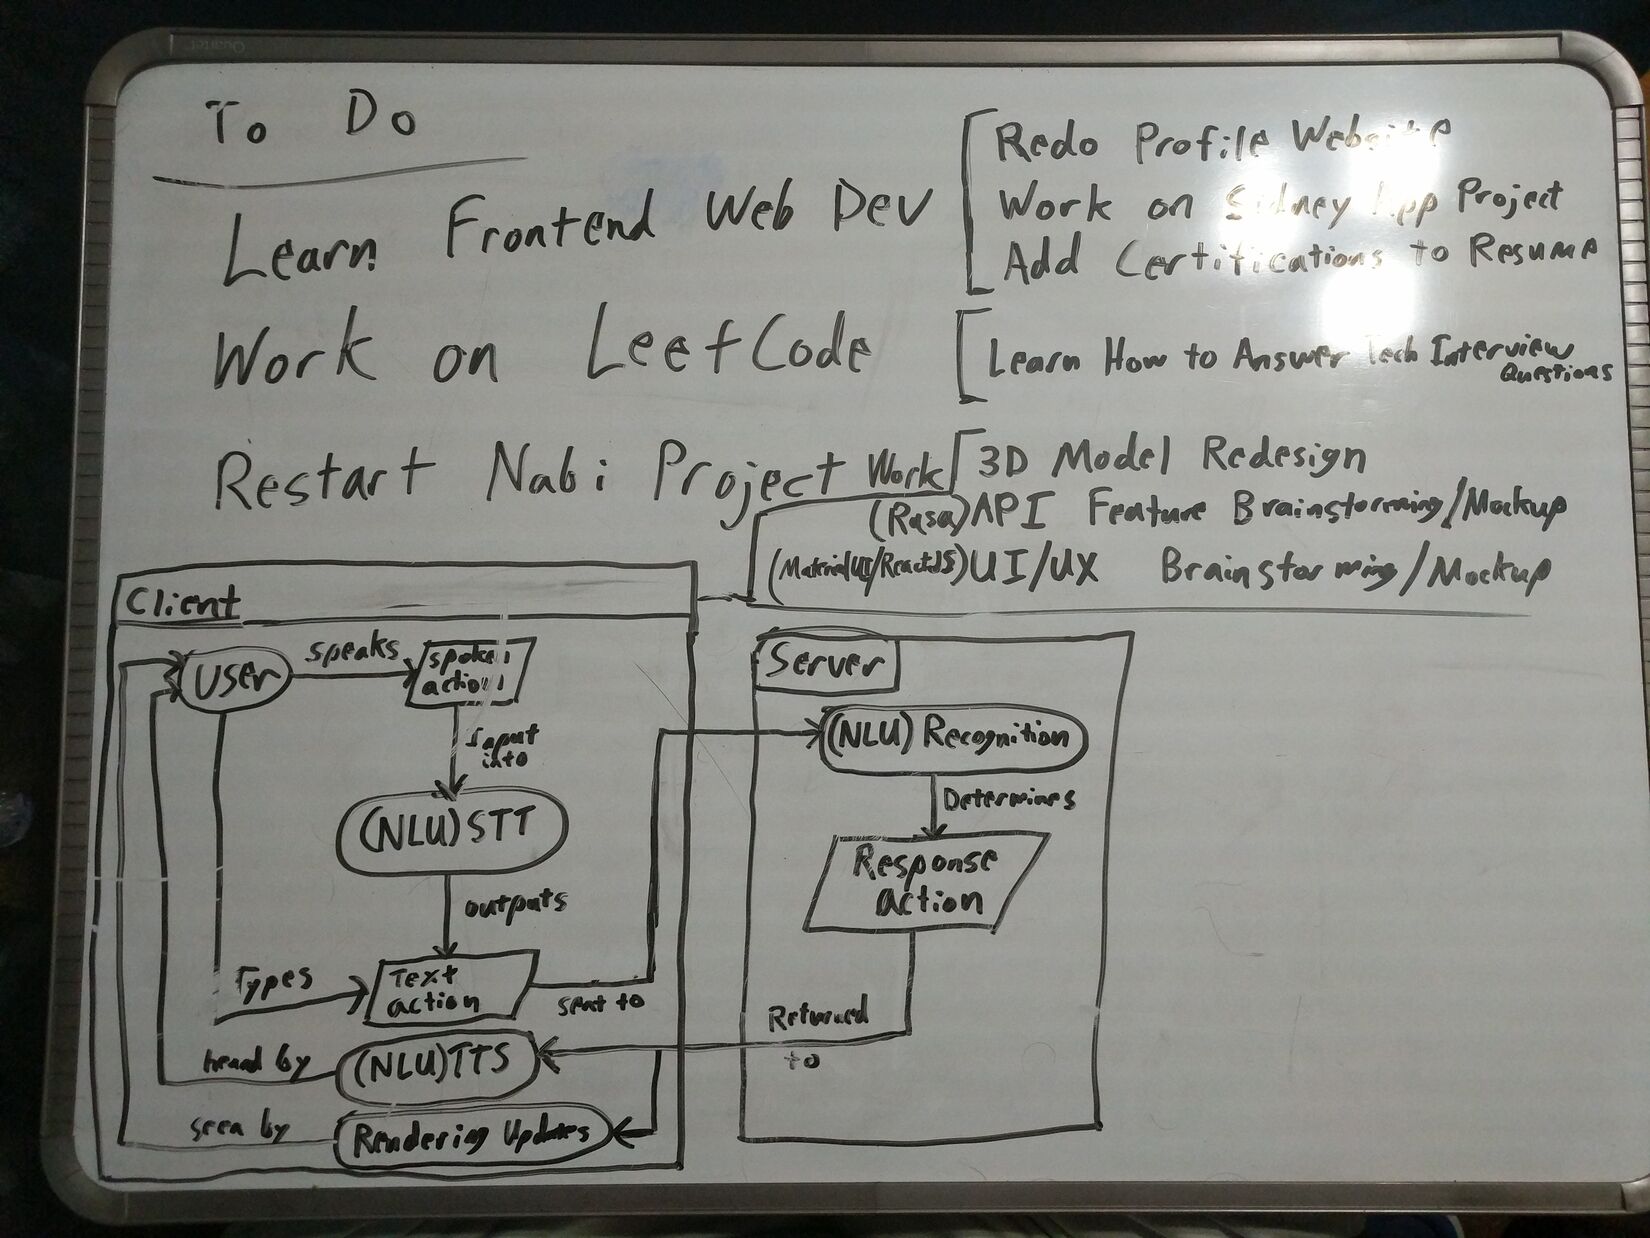 Quartet
To Do
Learn Frontend Web Dev
Redo Profile Website
Work on Sidney App Project
Add Certifications to Resume
Work on LeetCode
Learn How to Answer Tech Interview
Questions
Restart Nabi Project Work
3D Model Redesign
(Rasa) API Feature Brainstorming/Mockup
(MaterialUI/ReactJS) UI/UX Brainstorming/Mockup
Client
User
speaks
spoken
action
Input
into
(NLU) STT
outputs
Types
Text
action
sent to
heard by
(NLU) TTS
seen by
Rendering Updates
Server
(NLU) Recognition
Determines
Response
action
Returned
to